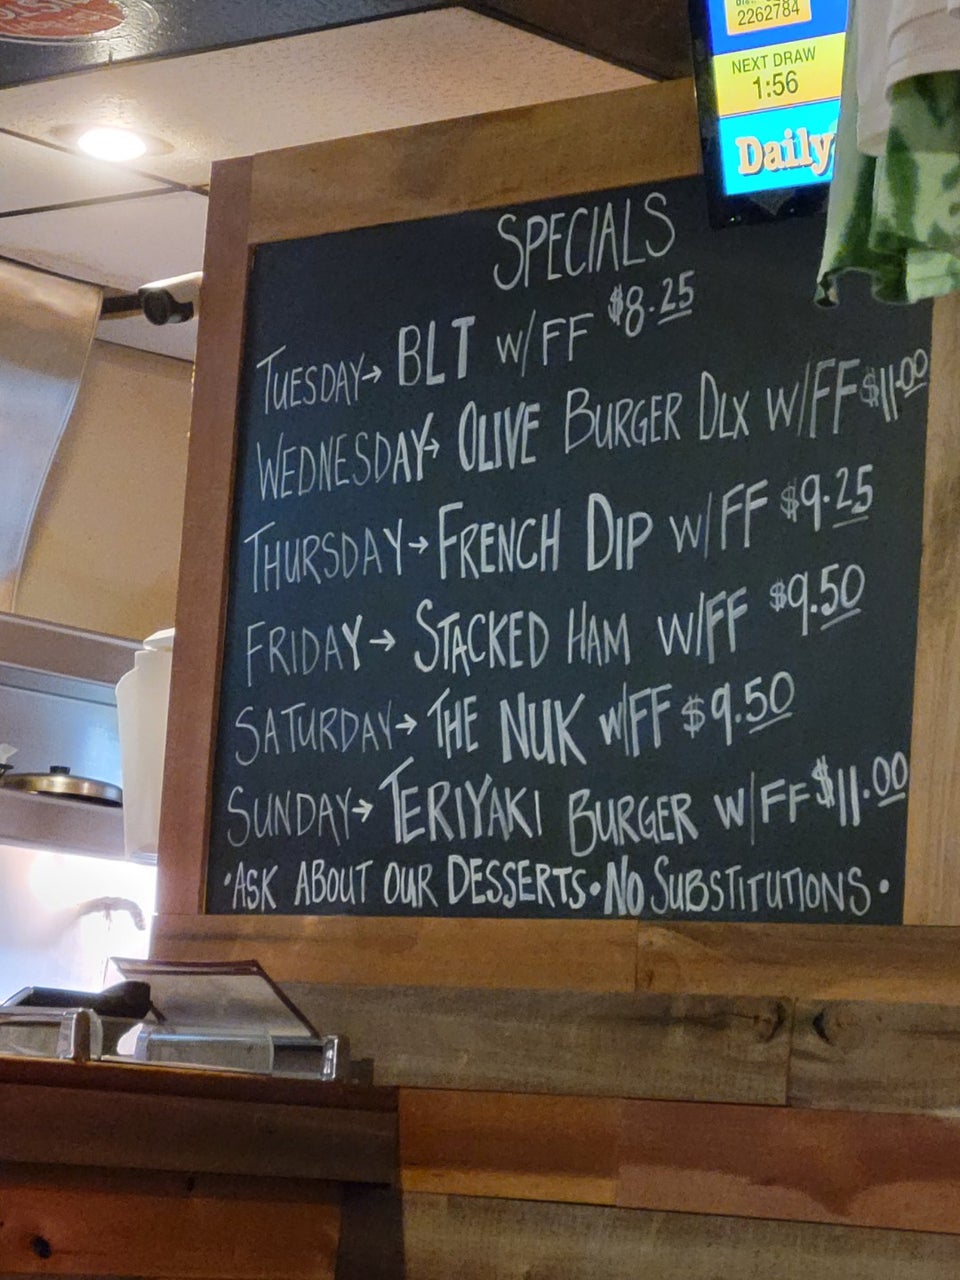 2262784
NEXT DRAW
1:56
Daily
SPECIALS
TUESDAY→ BLT W/FF $8.25
WEDNESDAY→ OLIVE BURGER DLX W/FF $11.00
THURSDAY→ FRENCH DIP W/FF $9.25
FRIDAY→ STACKED HAM W/FF $9.50
SATURDAY→ THE NUK W/FF $9.50
SUNDAY→ TERIYAKI BURGER W/FF $11.00
•ASK ABOUT OUR DESSERTS•NO SUBSTITUTIONS•